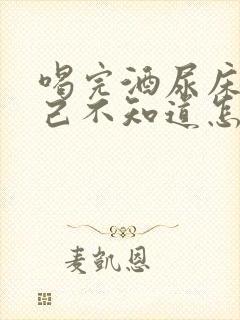 喝完酒尿床
己不知道怎
麦凯恩